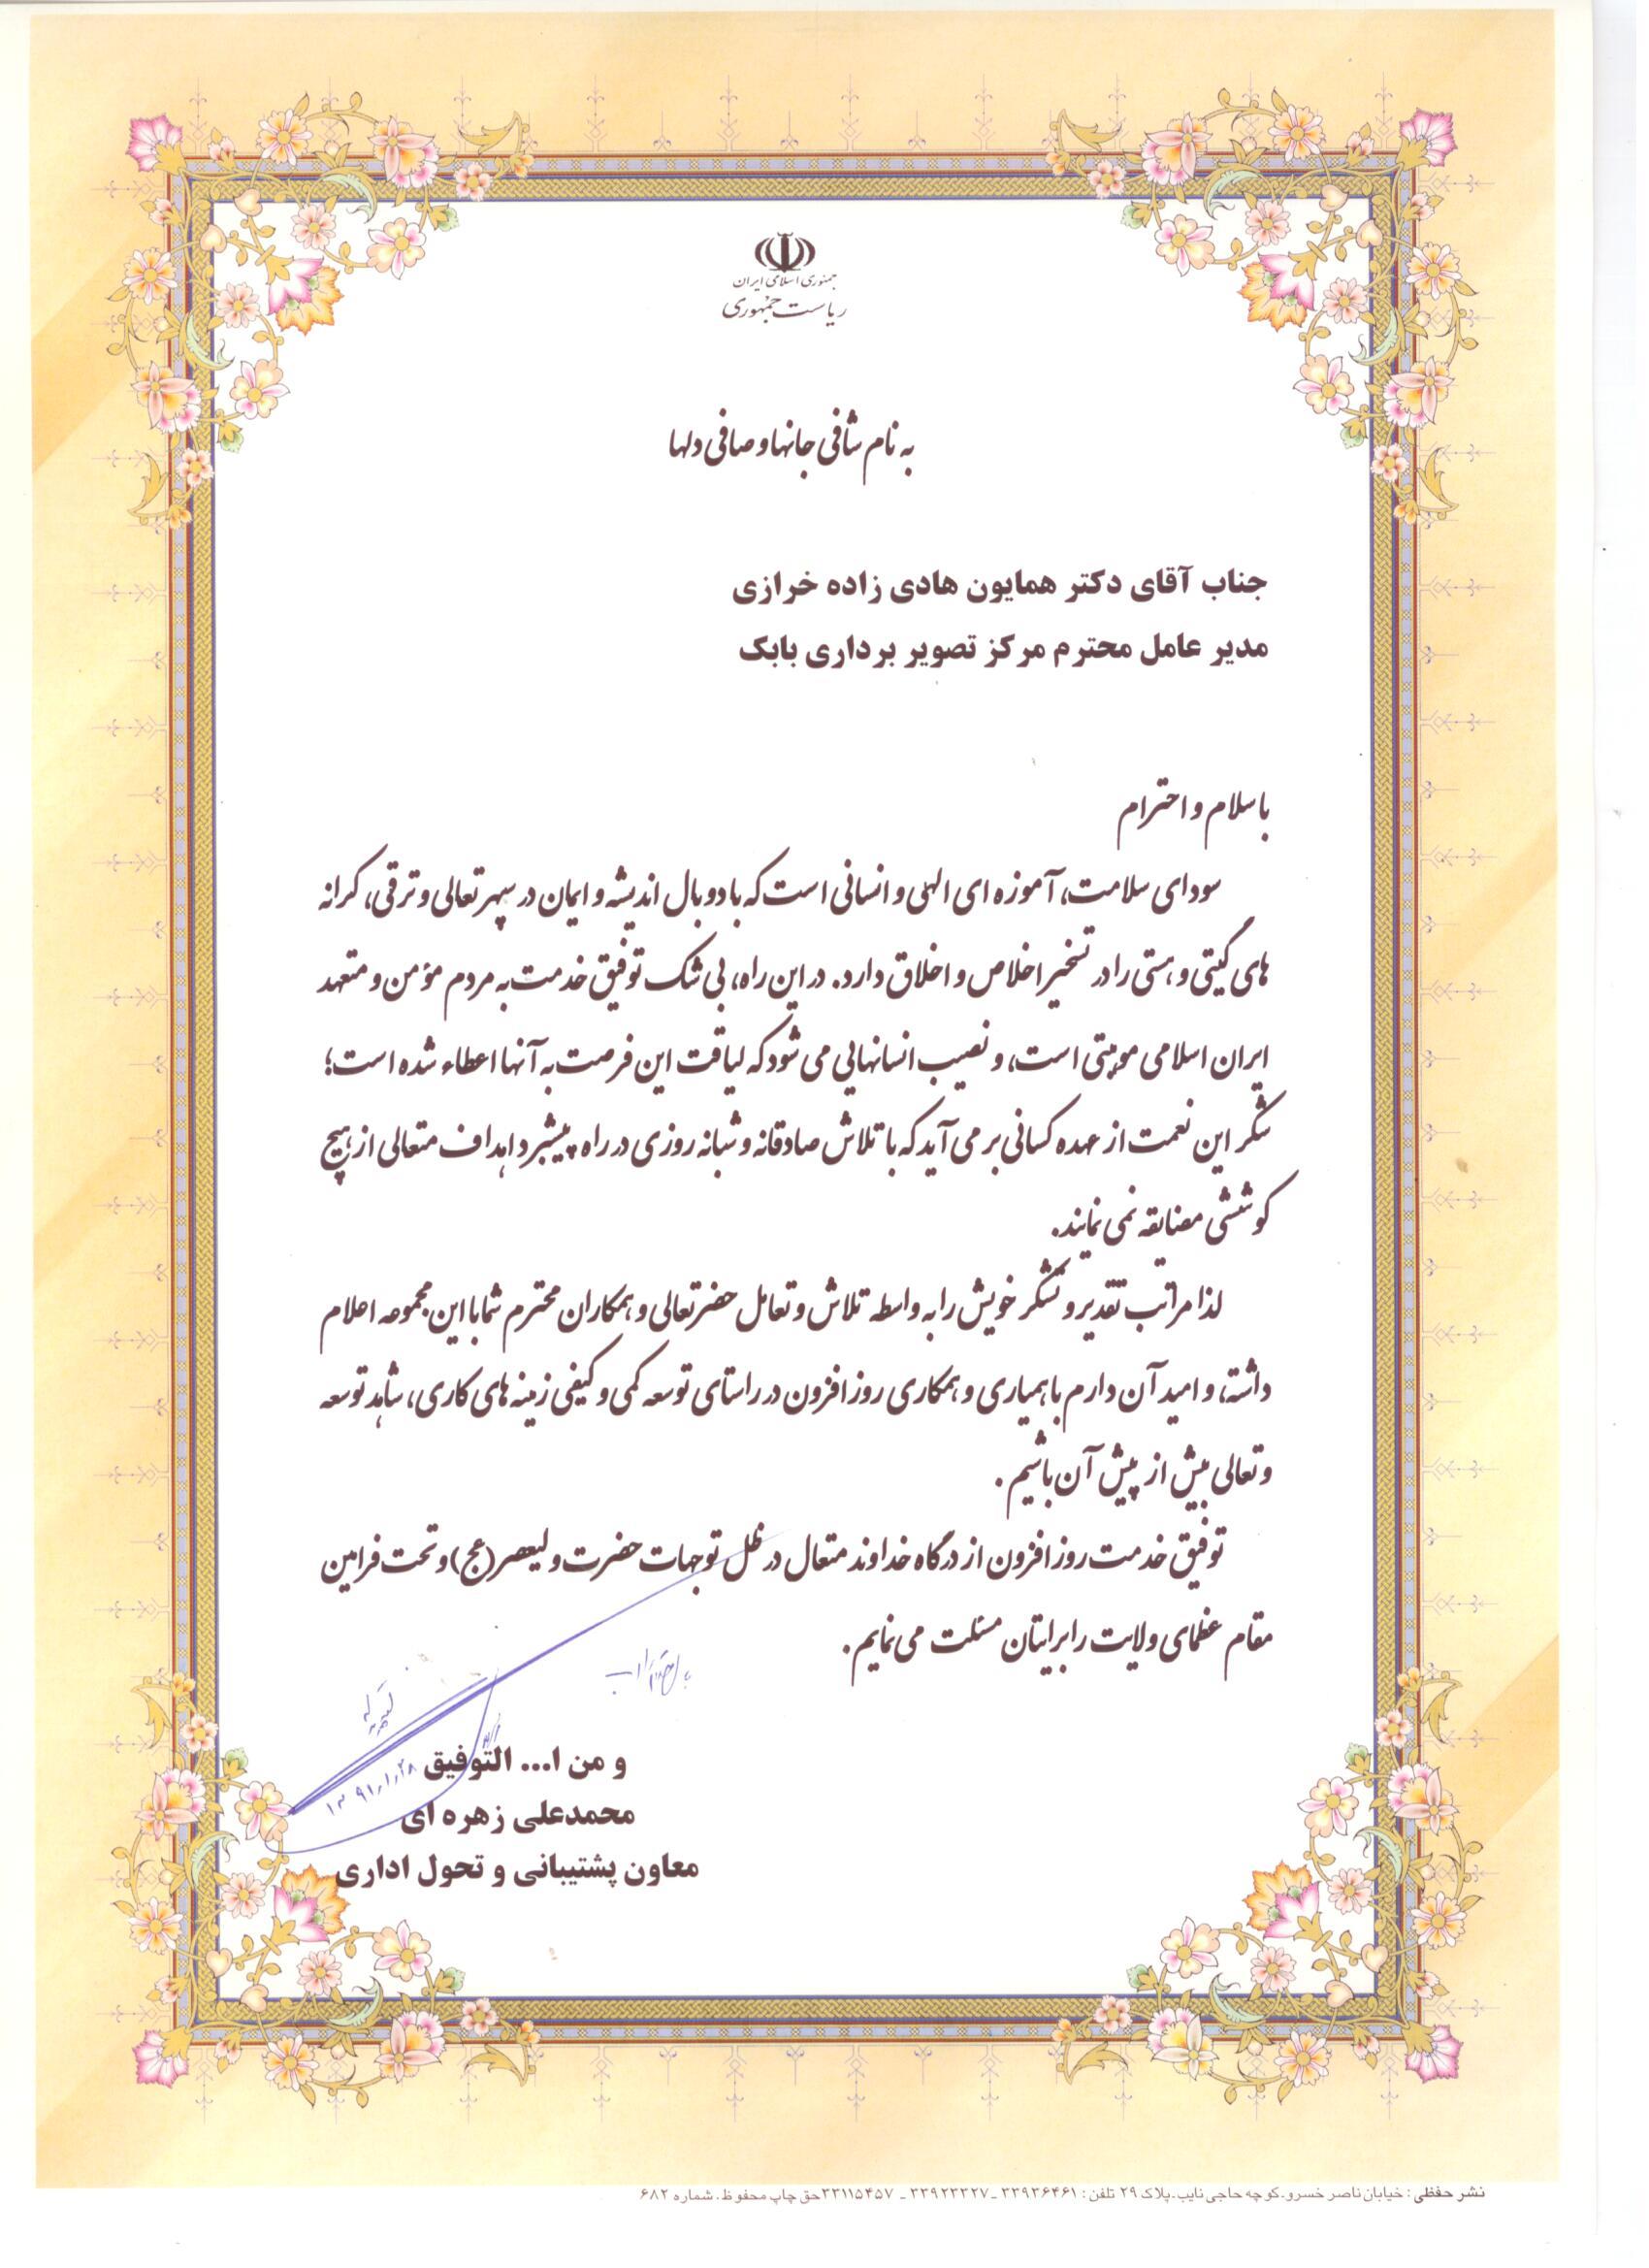 جمهوری اسلامی ایران
ریاست جمهوری
به نام شافی جانها و صافی دلها
جناب آقای دکتر همایون هادی زاده خرازی
مدیر عامل محترم مرکز تصویر برداری بابک
با سلام و احترام
سودای سلامت، آموزه ای الهی و انسانی است که با دو بال اندیشه و ایمان در سپهر تعالی و ترقی، کرانه
های گیتی و هستی را در تسخیر اخلاص و اخلاق دارد. در این راه، بی شک توفیق خدمت به مردم مؤمن و متعهد
ایران اسلامی موهبتی است، و نصیب انسانهایی می شود که لیاقت این فرصت به آنها اعطاء شده است؛
شکر این نعمت از عهده کسانی بر می آید که با تلاش صادقانه و شبانه روزی در راه پیشبرد اهداف متعالی از هیچ
کوششی مضایقه نمی نمایند.
لذا مراتب تقدیر و تشکر خویش را به واسطه تلاش و تعامل حضرتعالی و همکاران محترم شما با این مجموعه اعلام
داشته، و امید آن دارم با همیاری و همکاری روز افزون در راستای توسعه کمی و کیفی زمینه های کاری، شاهد توسعه
و تعالی بیش از پیش آن باشیم.
توفیق خدمت روز افزون از درگاه خداوند متعال در ظل توجهات حضرت ولیعصر (عج) و تحت فرامین
مقام عظمای ولایت را برایتان مسئلت می نمایم.
و من ا... التوفیق
۱۳۹۱٫۱٫۲۸
محمدعلی زهره ای
معاون پشتیبانی و تحول اداری
نشر حفظی : خیابان ناصر خسرو.کوچه حاجی نایب.پلاک ۲۹ تلفن : ۳۳۹۳۶۴۶۱ ـ ۳۳۹۲۳۳۲۷ ـ ۳۳۱۱۵۴۵۷ حق چاپ محفوظ. شماره ۶۸۲